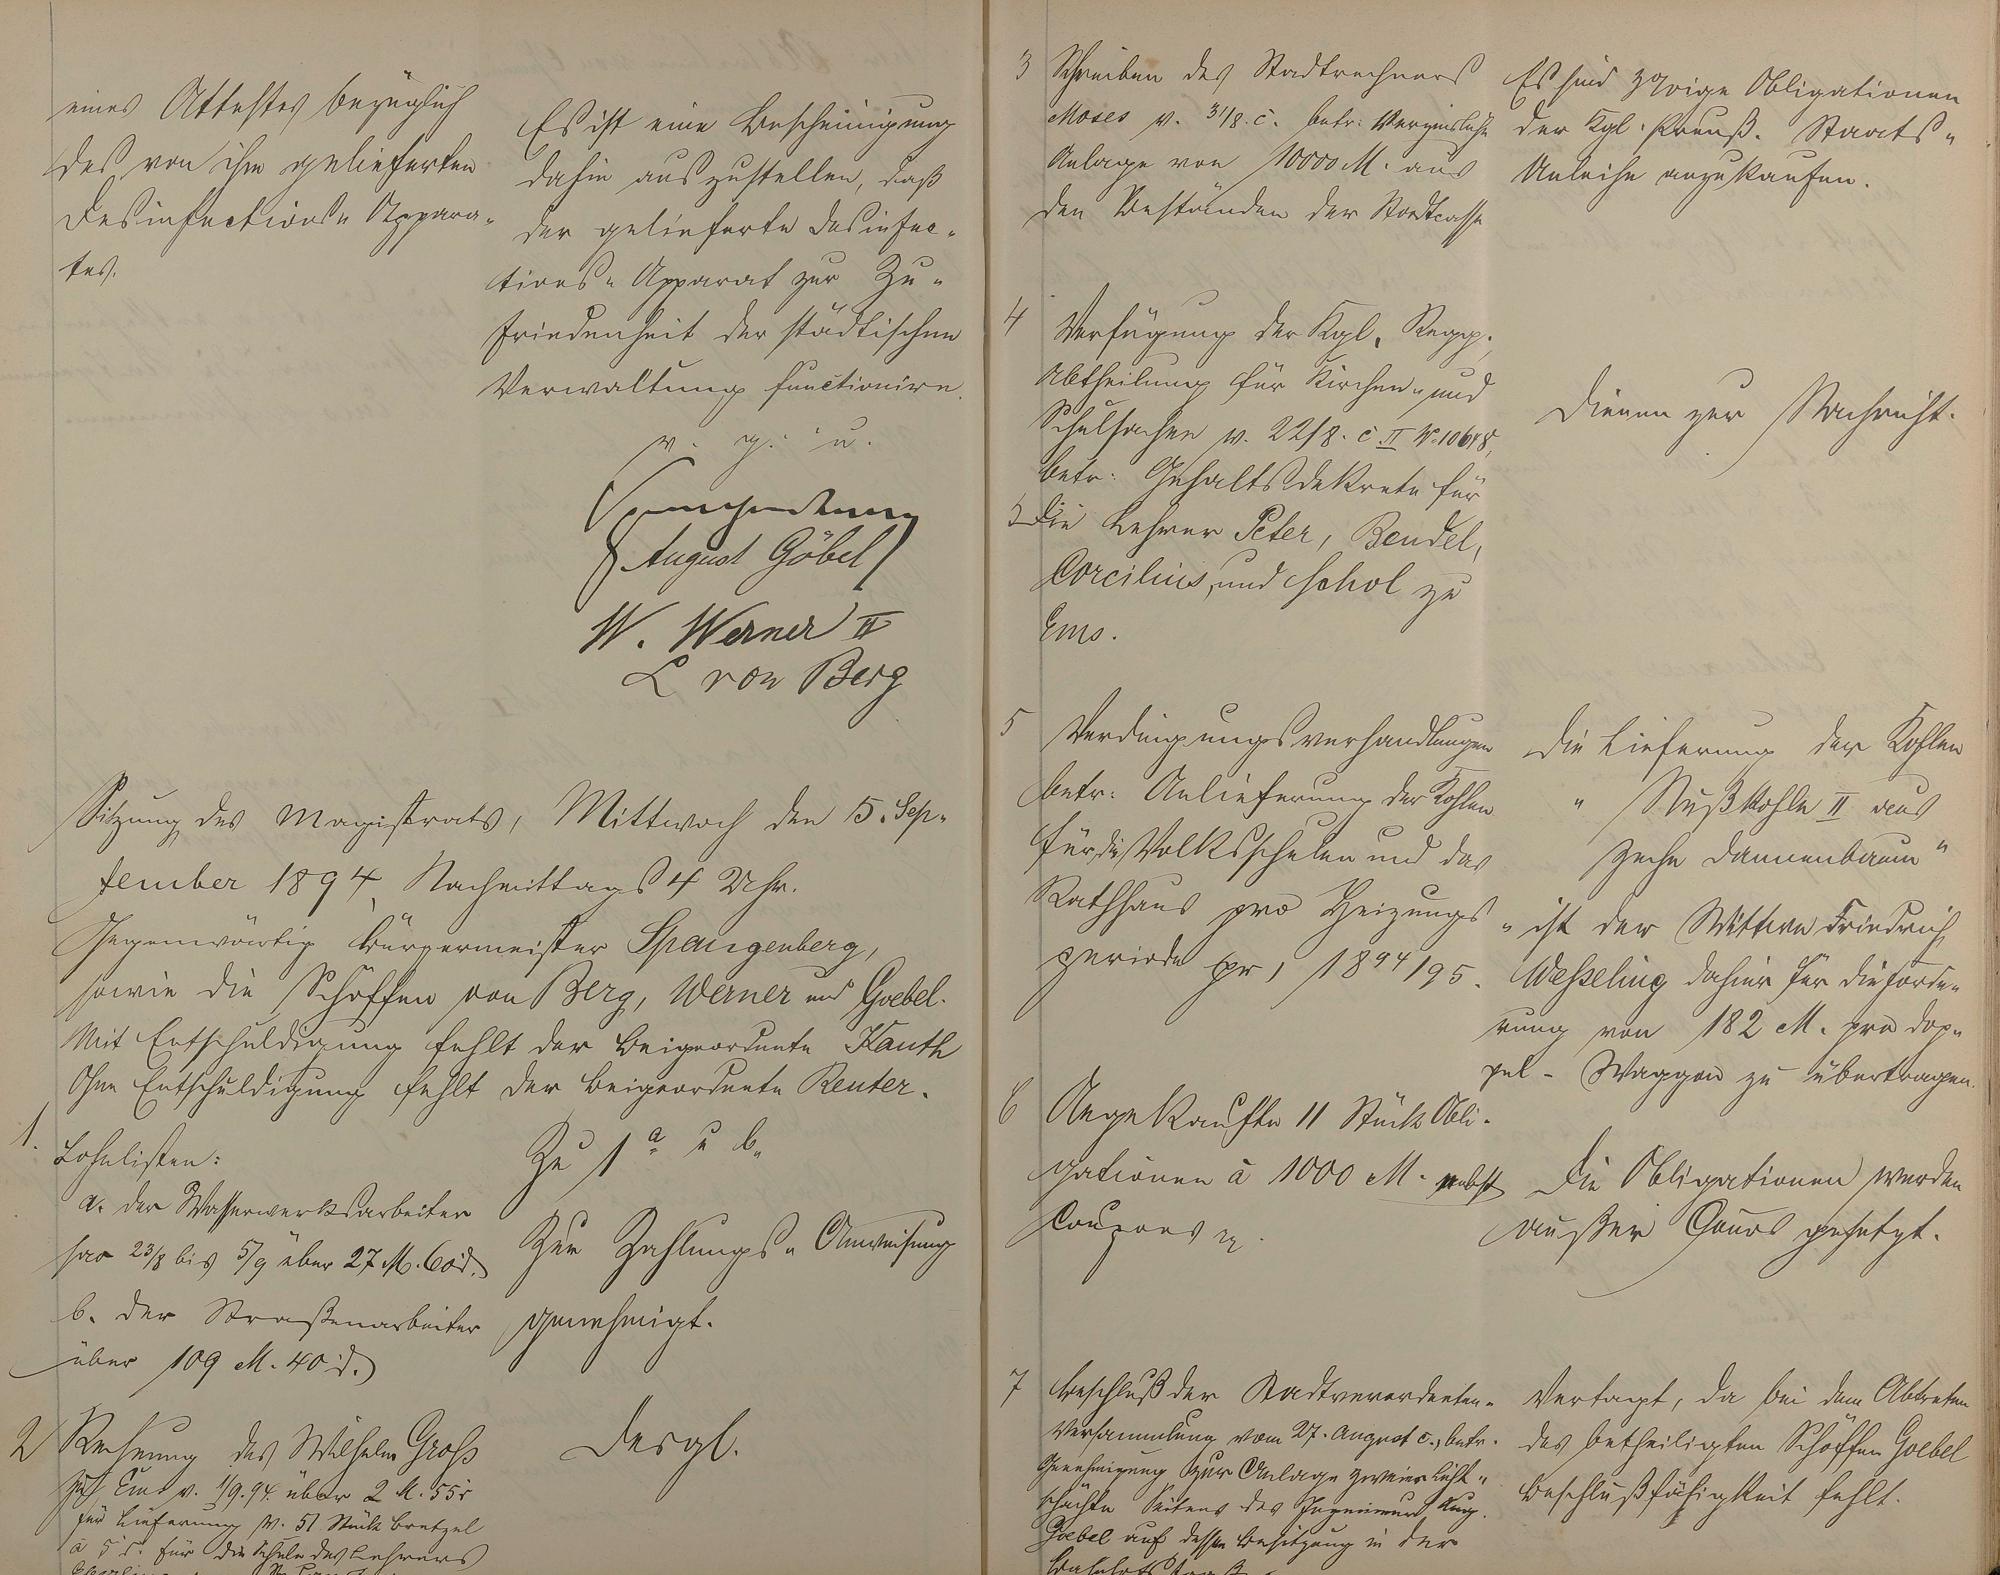 eines Attestes bezüglich
des von ihm gelieferten
Desinfections- Appara-
tes.
Es ist eine Bescheinigung
dahin auszustellen, daß
der gelieferte Desinfec-
tions- Apparat zur Zu-
friedenheit der städtischen
Verwaltung functionire.
v. g. u.
Spangenberg
August Göbel
W. Werner II
L von Berg
Sitzung des Magistrats, Mittwoch den 5. Sep-
tember 1894, Nachmittags 4 Uhr.
Gegenwärtig Bürgermeister Spangenberg,
sowie die Schöffen von Berg, Werner und Goebel.
Mit Entschuldigung fehlt der Beigeordnete Kauth
Ohne Entschuldigung fehlt der Beigeordnete Reuter.
1. Lohnlisten:
a. der Wasserwerksarbeiter
pro 23/8 bis 5/9 über 27 M. 60 d.
b. der Straßenarbeiter
über 109 M. 40 d.
Zu 1 a u b.
Zur Zahlungs- Anweisung
genehmigt.
2 Rechnung des Wilhelm Groß
zu Ems v. 1/9.94. über 2 M. 55
für Lieferung v. 51 Stück Bretzel
a 5 d. für die Schule des Lehrers
Desgl.
3 Schreiben des Stadtrechners
Moses v. 31/8. c. betr: Verzinsliche
Anlage von 10000 M. aus
den Beständen der Stadtcasse
Es sind 3%ige Obligationen
der Kgl. Preuß. Staats-
Anleihe anzukaufen.
4 Verfügung der Kgl. Regg.,
Abtheilung für Kirchen- und
Schulsachen v. 22/8. c II No 10648,
betr: Gehaltsdekrete für
die Lehrer Peter, Bendel,
Corcilius, und Schol zu
Ems.
Dienen zur Nachricht.
5 Verdingungsverhandlungen
betr: Anlieferung der Kohlen
für die Volksschulen und das
Rathhaus pro Heizungs-
periode pr, 1894/95.
Die Lieferung der Kohlen
" Nußkohle II aus
Zeche Dannenbaum "
ist der Wittwe Friedrich
Wesseling dahier für die Forde-
rung von 182 M. pro Dop-
pel- Waggon zu übertragen.
6 Angekaufte 11 Stück Obli-
gationen à 1000 M. nebst
Coupons
Die Obligationen werden
außer Cours gesetzt.
7 Beschluß der Stadtverordneten-
Versammlung vom 27. August c., betr.
Genehmigung zur Anlage zweier Licht-
schächte Seitens des Ingenieur Aug.
Goebel auf dessen Besitzung in der
Vertagt, da bei dem Abtreten
des betheiligten Schöffen Goebel
Beschlußfähigkeit fehlt.